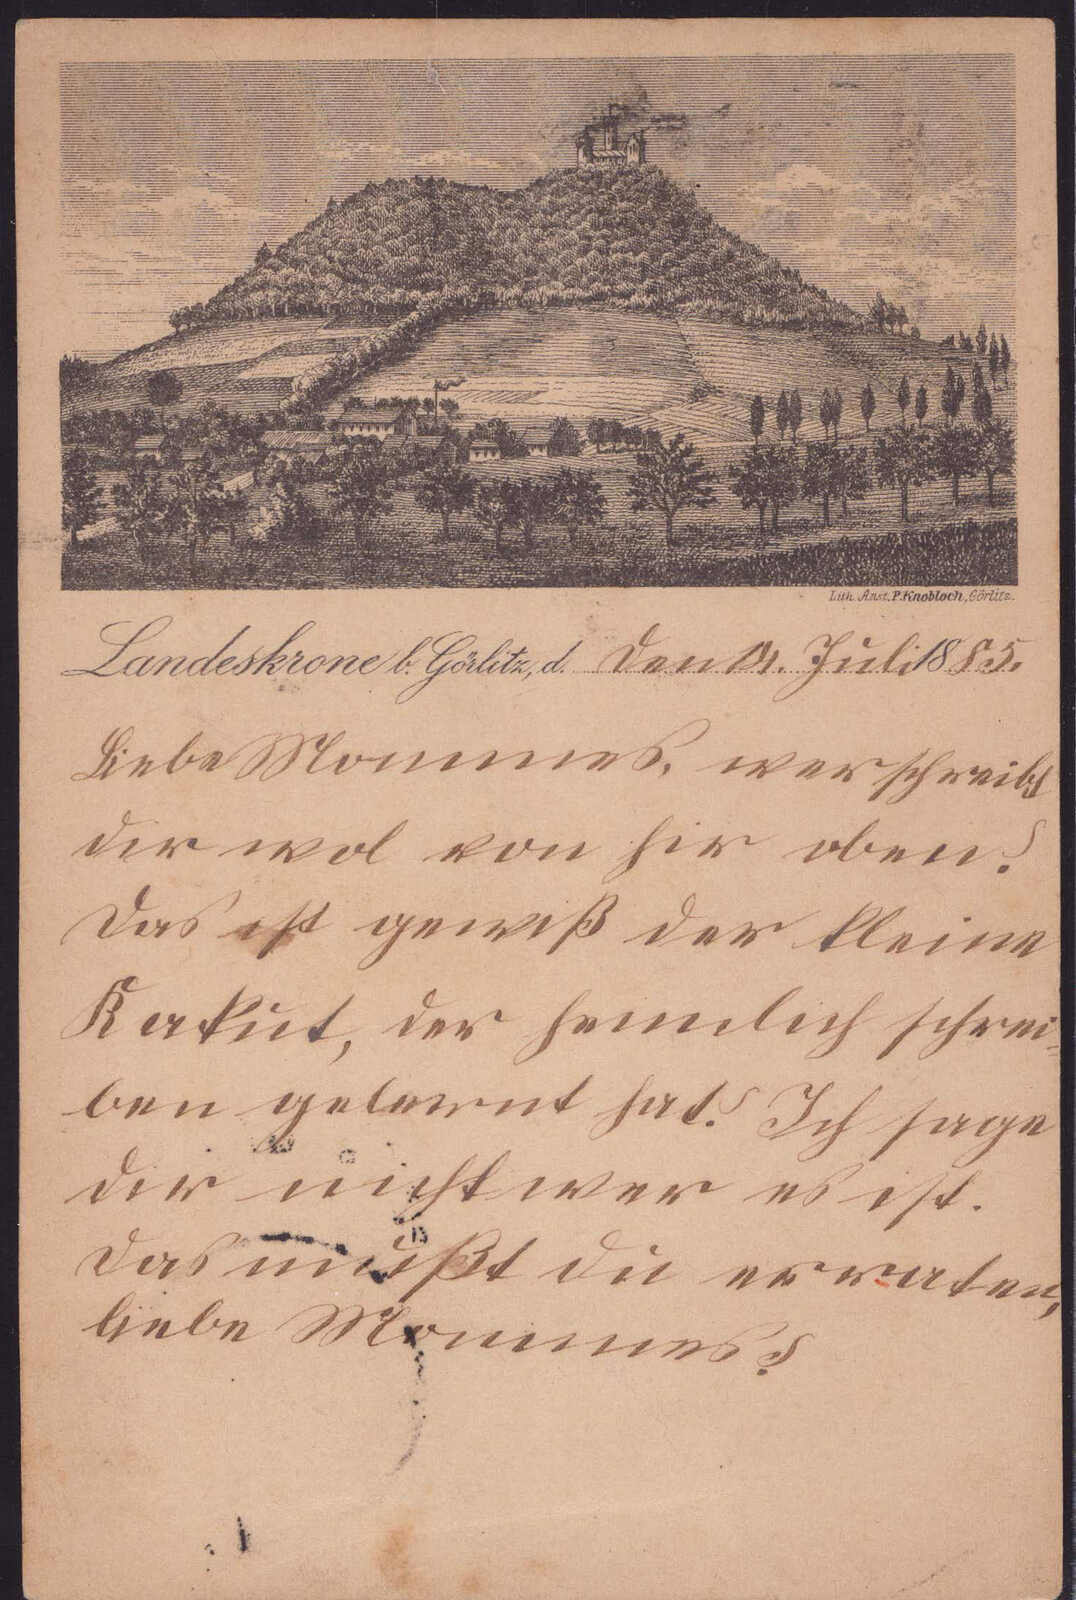 Lith. Anst. P. Knobloch, Görlitz.
Landeskrone b. Görlitz, d. den Juli 1885.
Liebe Mommes, wer schreibt
dir wol von hir oben?
Das ist gewiß der kleine
Kakut, der heimlich schrei-
ben gelernt hat? Ich sage
dir nicht wer es ist.
Das mußt du erraten,
liebe Mommes?